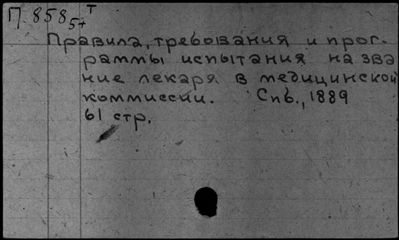 П. 858 5+ т
Правила, требования и прог-
раммы испытания на зва
ние лекаря в медицинской
коммиссии. Спб., 1889
61 стр.